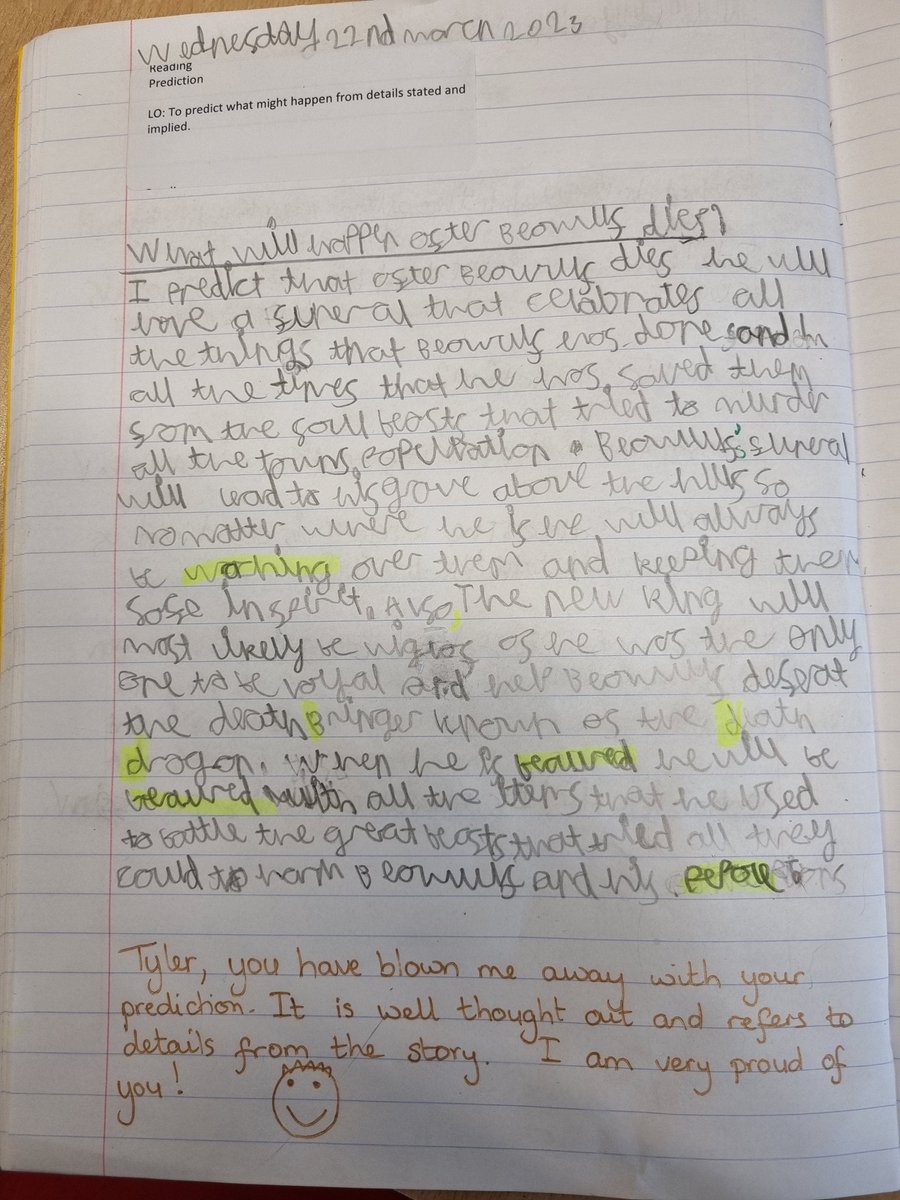 Wednesday 22nd march 2023
Reading
Prediction
LO: To predict what might happen from details stated and
implied.
What will happen after Beowulfs dies?
I predict that after Beowulfs dies he will
have a funeral that celabrates all
the things that Beowulfs has done and
all the times that he has saved them
from the foul beasts that tried to murder
all the towns population. Beowulfs's funeral
will lead to his grave above the hills so
no matter where he is he will always
be waching over them and keeping them
safe in speirit. Also, The new king will
most likely be as he was the only
one to be loyal and help Beowulfs defeat
the death Bringer known as the death
dragon. When he is beaured he will be
beaured with all the items that he used
to battle the great beasts that tried all they
could to harm Beowulfs and his
Tyler, you have blown me away with your
prediction. It is well thought out and refers to
details from the story. I am very proud of
you!